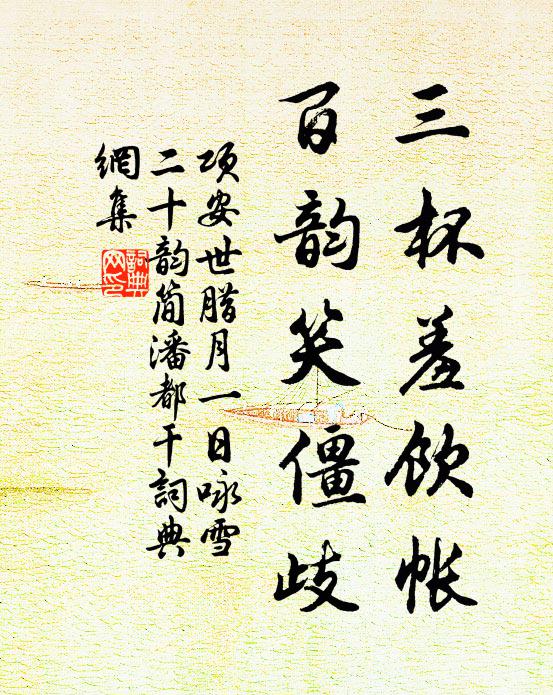 三杯羞飲帳
百韵笑僵歧
項安世腊月一日咏雪
二十韵简潘都干詞典
網集
詞典
网印